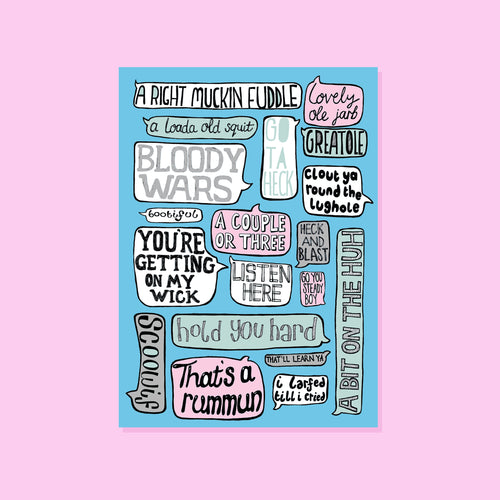 A RIGHT MUCKIN FUDDLE
Lovely
ole jarb
a loada old squit
GO
TA
HECK
GREATOLE
BLOODY
WARS
Clout ya
round the
lughole
bootiful
A COUPLE
OR THREE
HECK
AND
BLAST
YOU'RE
GETTING
ON MY
WICK
LISTEN
HERE
GO YOU
STEADY
BOY
A BIT ON THE HUH
hold you hard
THAT'LL LEARN YA
That's a
rummun
i larfed
till i cried